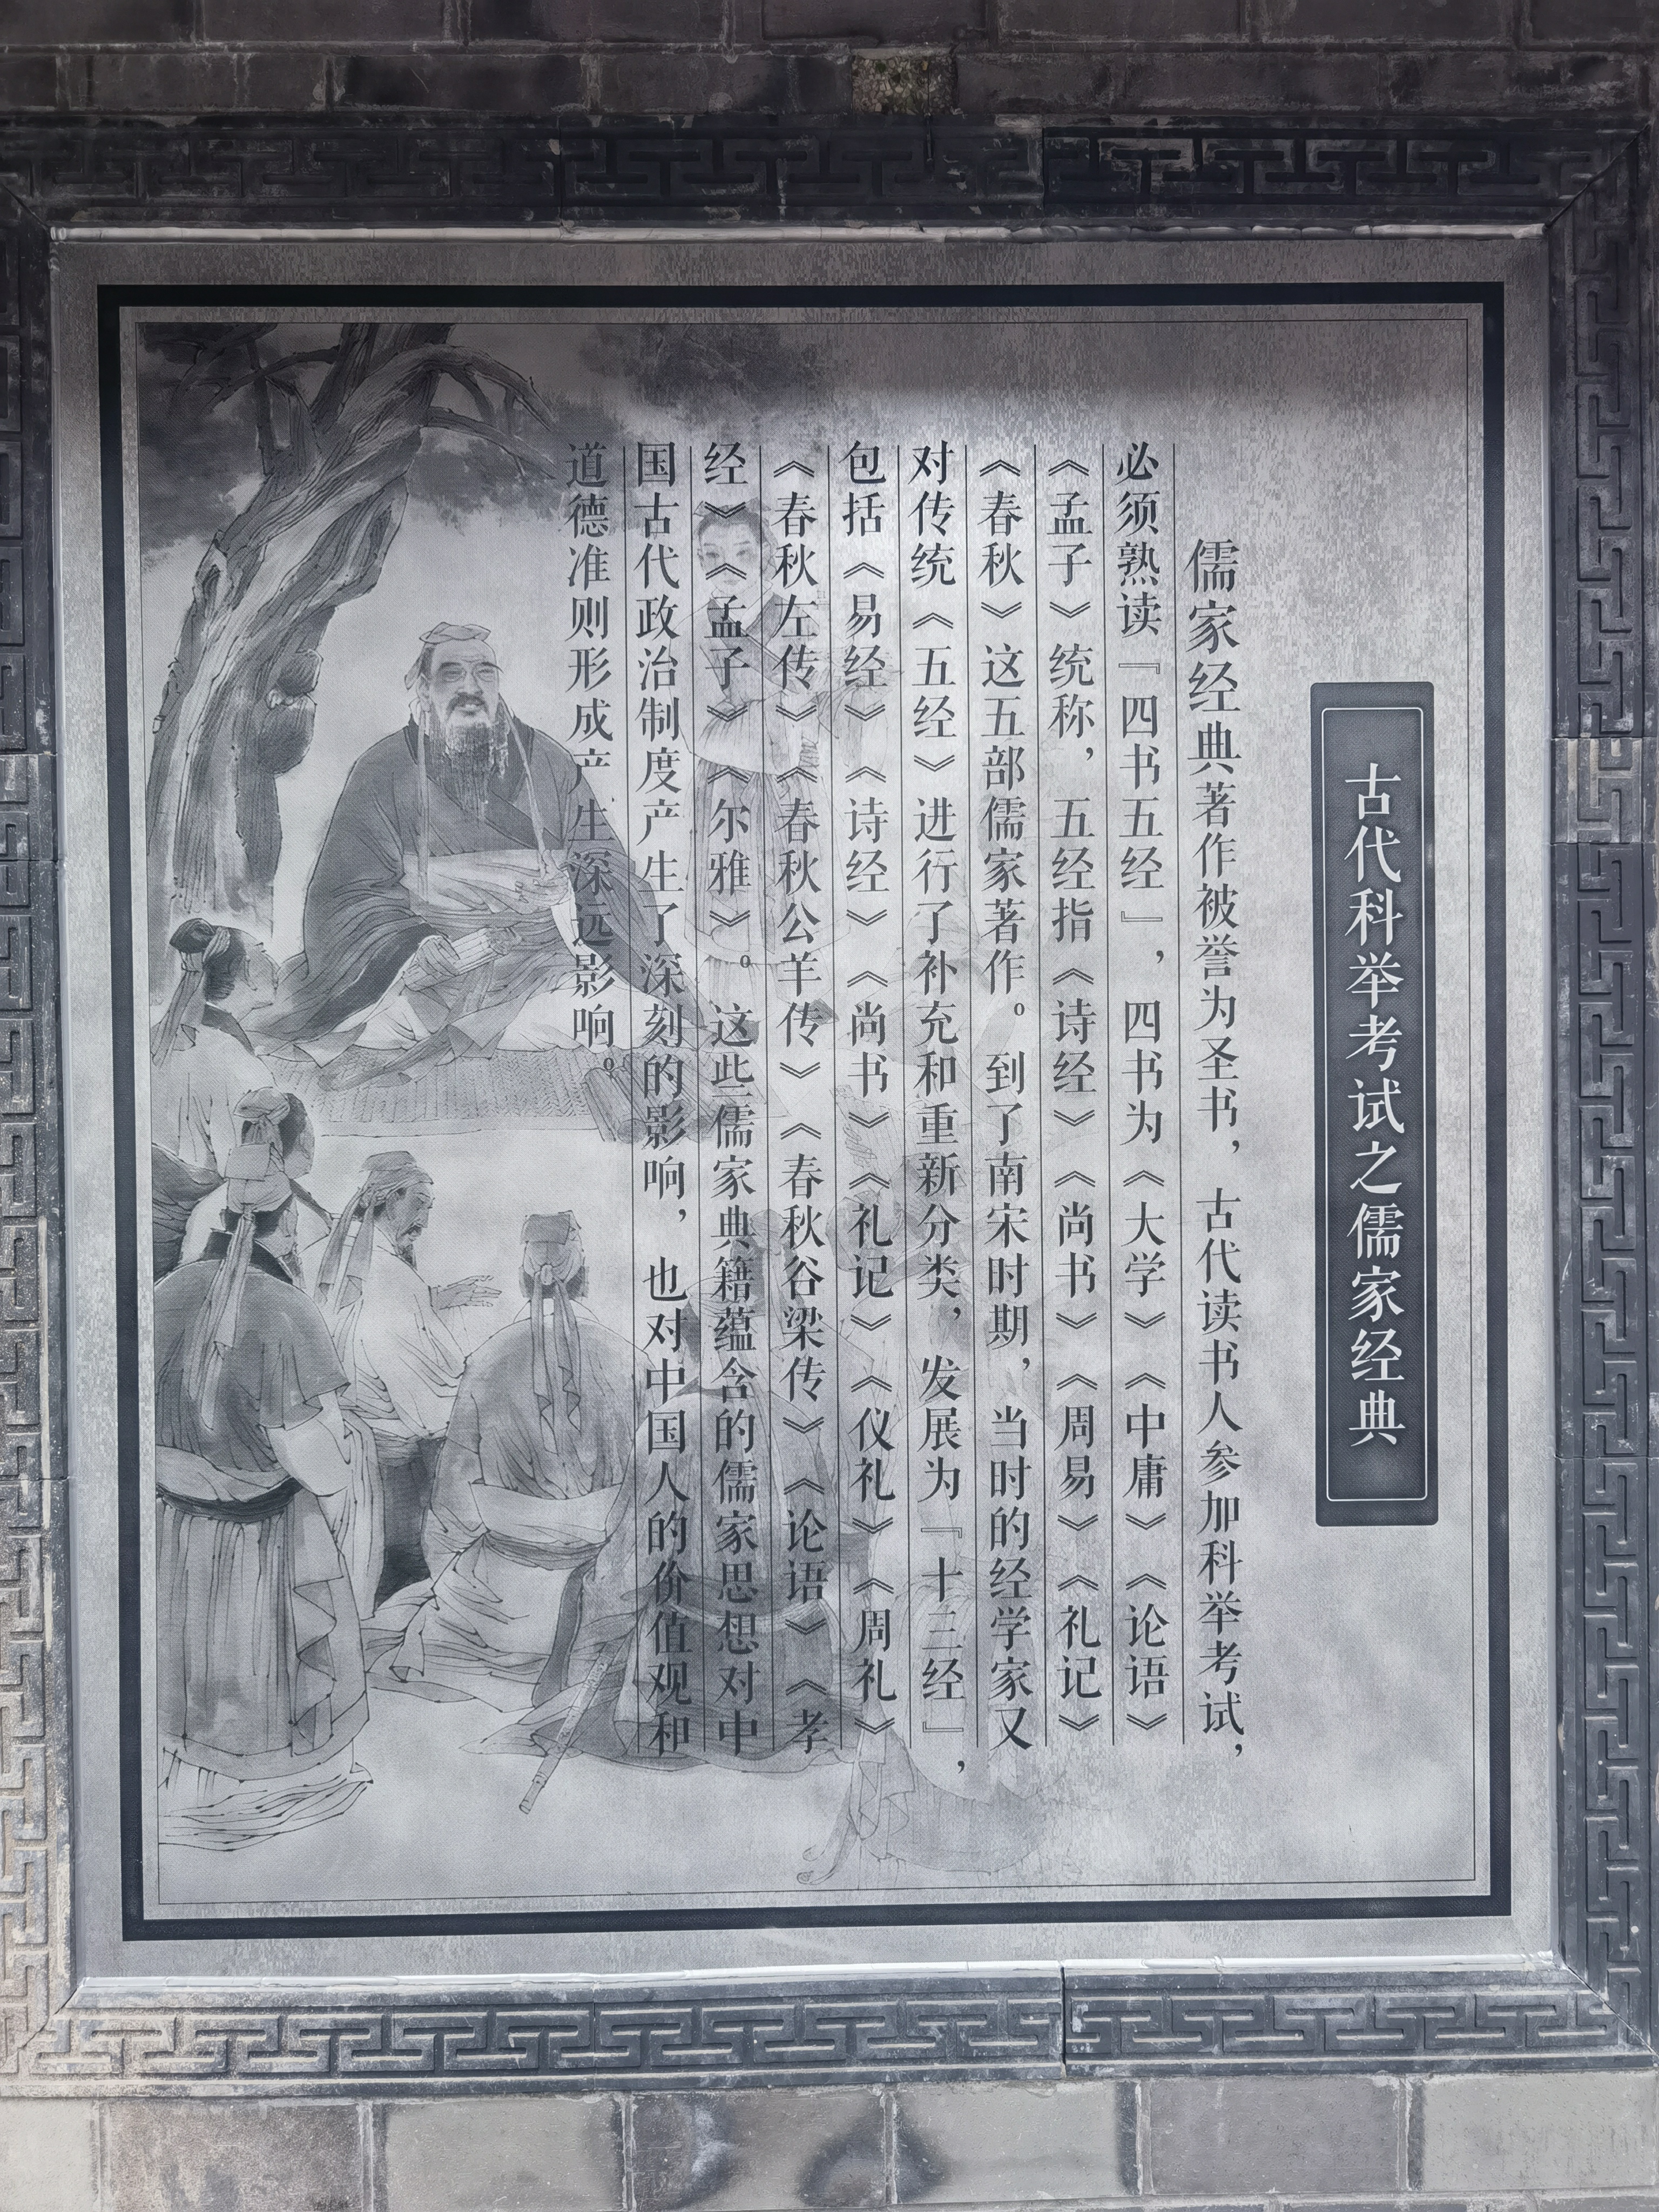 古代科举考试之儒家经典
儒家经典著作被誉为圣书，古代读书人参加科举考试，
必须熟读『四书五经』，四书为《大学》《中庸》《论语》
《孟子》统称，五经指《诗经》《尚书》《周易》《礼记》
《春秋》这五部儒家著作。到了南宋时期，当时的经学家又
对传统《五经》进行了补充和重新分类，发展为『十三经』，
包括《易经》《诗经》《尚书》《礼记》《仪礼》《周礼》
《春秋左传》《春秋公羊传》《春秋谷梁传》《论语》《孝
经》《孟子》《尔雅》。这些儒家典籍蕴含的儒家思想对中
国古代政治制度产生了深刻的影响，也对中国人的价值观和
道德准则形成产生深远影响。